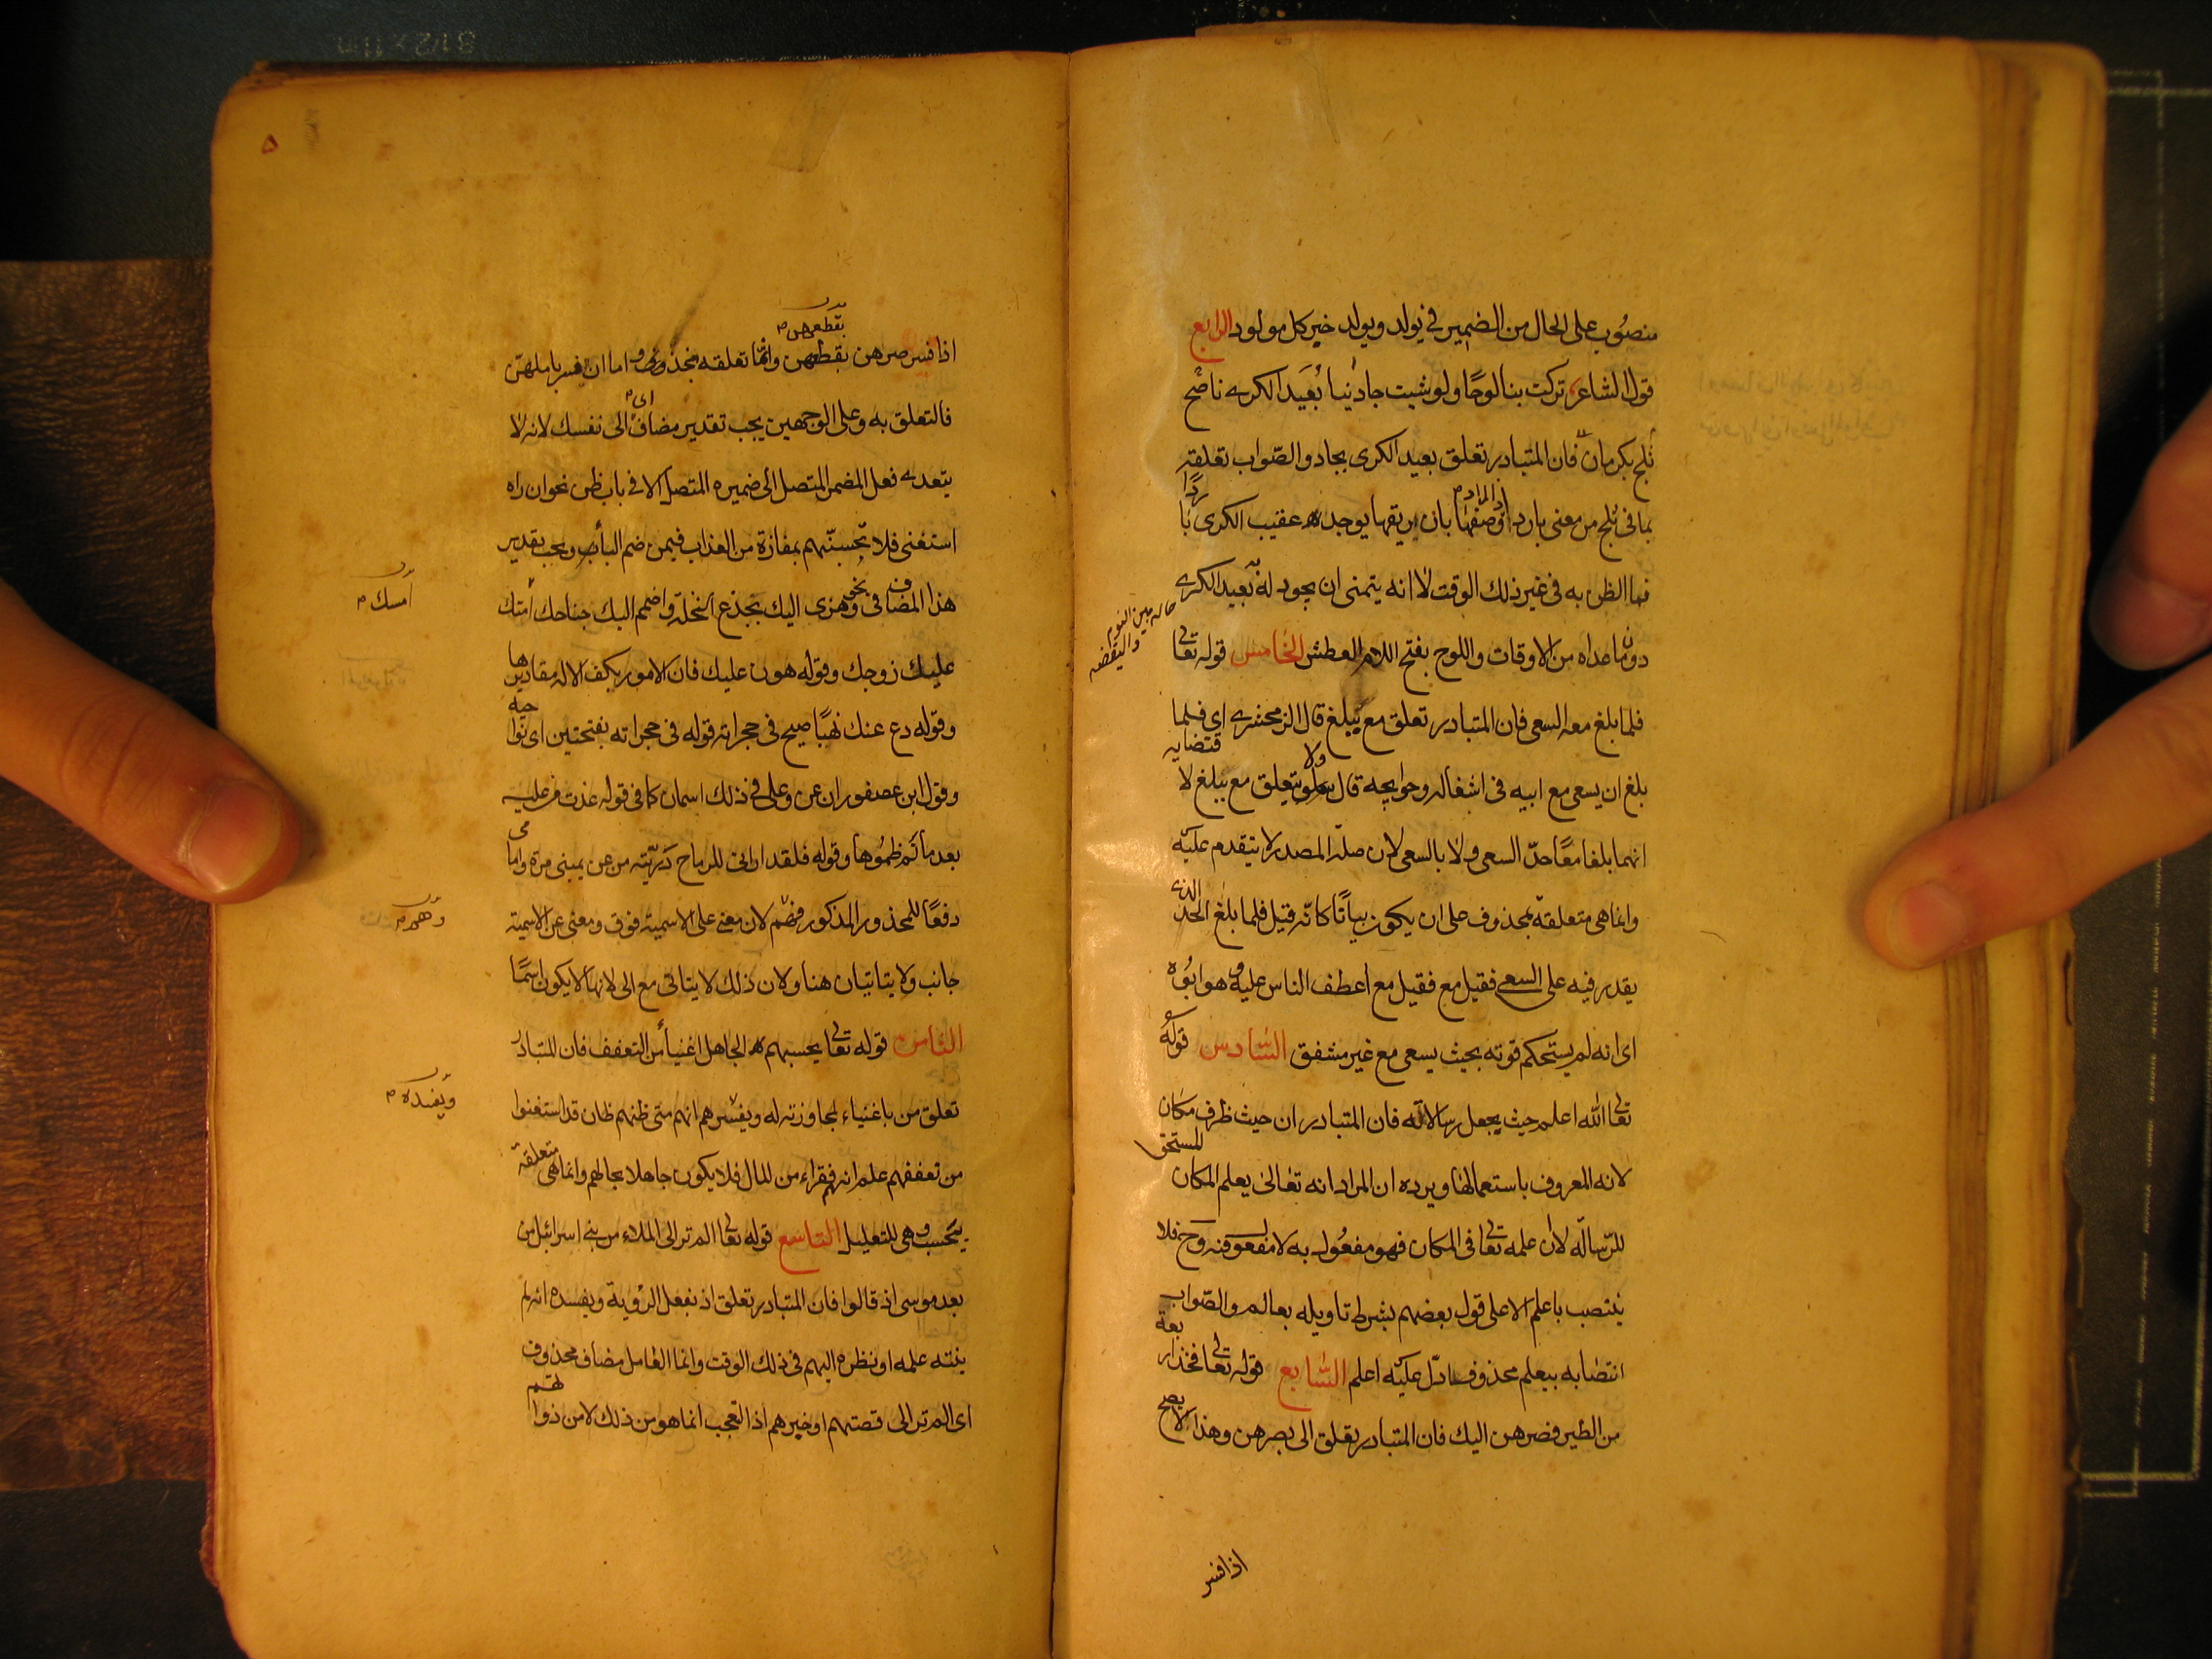 منصُوب على الحال من الضمير في يولد ويولد خير كل مولود الرابع
قول الشاعر تركت بنا لوحًا ولو شيت جادنيا بُعَيد الكرى ناصح
ثلج بكرمان فان المتبادر تعلق بعيد الكرى بجاد والصّواب تعلقه
بما في ثلج من معنى بارد اذ المراد وصفها بان ريقها يوجد عقيب الكرى باردًا
فما الظن به في غير ذلك الوقت لا انه يتمنى ان يجود له بعيد الكرى
حالة بين النوم واليقضه
دون ما عداه من الاوقات واللوح بفتح اللام العطش الخامس قوله تعالى
فلما بلغ معه السعى فان المتبادر تعلق مع ببلغ قال الزمحشرى اى فلما
بلغ ان يسعى مع ابيه في اشغاله وحوايجه قال ولا يتعلق مع ببلغ لاقتضايه
انهما بلغا معًا حدّ السعى ولا بالسعى لان صلة المصدر لا تتقدم عليه
وانما هى متعلقة بمحذوف على ان يكون بيانًا كانّه قيل فلما بلغ الحد الذى
يقدر فيه على السعى فقيل مع فقيل مع اعطف الناس عليه وهو ابُوه
اى انه لم يستحكم قوته بحيث يسعى مع غير مشفق السّادس قوله
تعالى الله اعلم حيث يجعل رسالاته فان المتبادر ان حيث ظرف مكان
لانه المعروف باستعمالها ويرده ان المراد انه تعالى يعلم المكان المستحق
للرّسالة لان علمه تعالى في المكان فهو مفعُول به لا مفعول فيه وح فلا
ينتصب باعلم الا على قول بعضهم بشرط تاويله بعالم والصّواب
انتصابه بيعلم محذوفا دلّ عليه اعلم السّابع قوله تعالى فخذ اربعة
من الطير فصرهن اليك فان المتبادر تعلق الى بصرهن وهذا لا يصح
اذا فسر
٥
بقطعهن
اذا فسر صرهن بقطعهن وانما تعلقه بخذ واما ان فسر باملهنّ
فالتعلق به وعلى الوجهين يجب تقدير مضاف اى الى نفسك لانه لا
يتعدى فعل المضمر المتصل الى ضميره المتصل الا في باب ظن نحو ان راه
استغنى فلا تحسبنّهم بمفازة من العذاب فيمن ضم الباء ويجب تقدير
هذا المضاف في نحو وهزى اليك بجذع النخلة واضمم اليك جناحك امسك
امسك
عليك زوجك وقوله هون عليك فان الامور بكف الاله مقاديرها
وقوله دع عنك نهبًا صيح في حجراته قوله في حجراته بفتحتين اى نواحيه
وقول ابن عصفور ان عن وعلى في ذلك اسمان كما في قوله غدت من عليه
بعد ما تم ظموها وقوله فلقد ارانى للرماح دريّة من عن يمينى مرة وامامى
دفعًا للمحذور المذكور فوهم لان معنى على الاسمية فوق ومعنى عن الاسمية
وهم
جانب ولا يتاتيان هنا ولان ذلك لا يتاتى مع الى لانها لا يكون اسمًا
الثامن قوله تعالى يحسبهم الجاهل اغنياء من التعفف فان المتبادر
تعلق من باغنياء لمجاوزته له ويفسّرهم انهم متى ظنهم ظان قد استغنوا
ويفسده
من تعففهم علم انهم فقراء من المال فلا يكون جاهلا بحالهم وانما هى متعلقة
بيحسب وهى للتعليل التاسع قوله تعالى الم تر الى الملاء من بنى اسرائيل من
بعد موسى اذ قالوا فان المتبادر تعلق اذ بفعل الرؤية ويفسده انه لم
ينته علمه او نظره اليهم في ذلك الوقت وانما العامل مضاف محذوف
اى الم تر الى قصتهم او خبرهم اذ التعجب انما هو من ذلك لا من ذواتهم